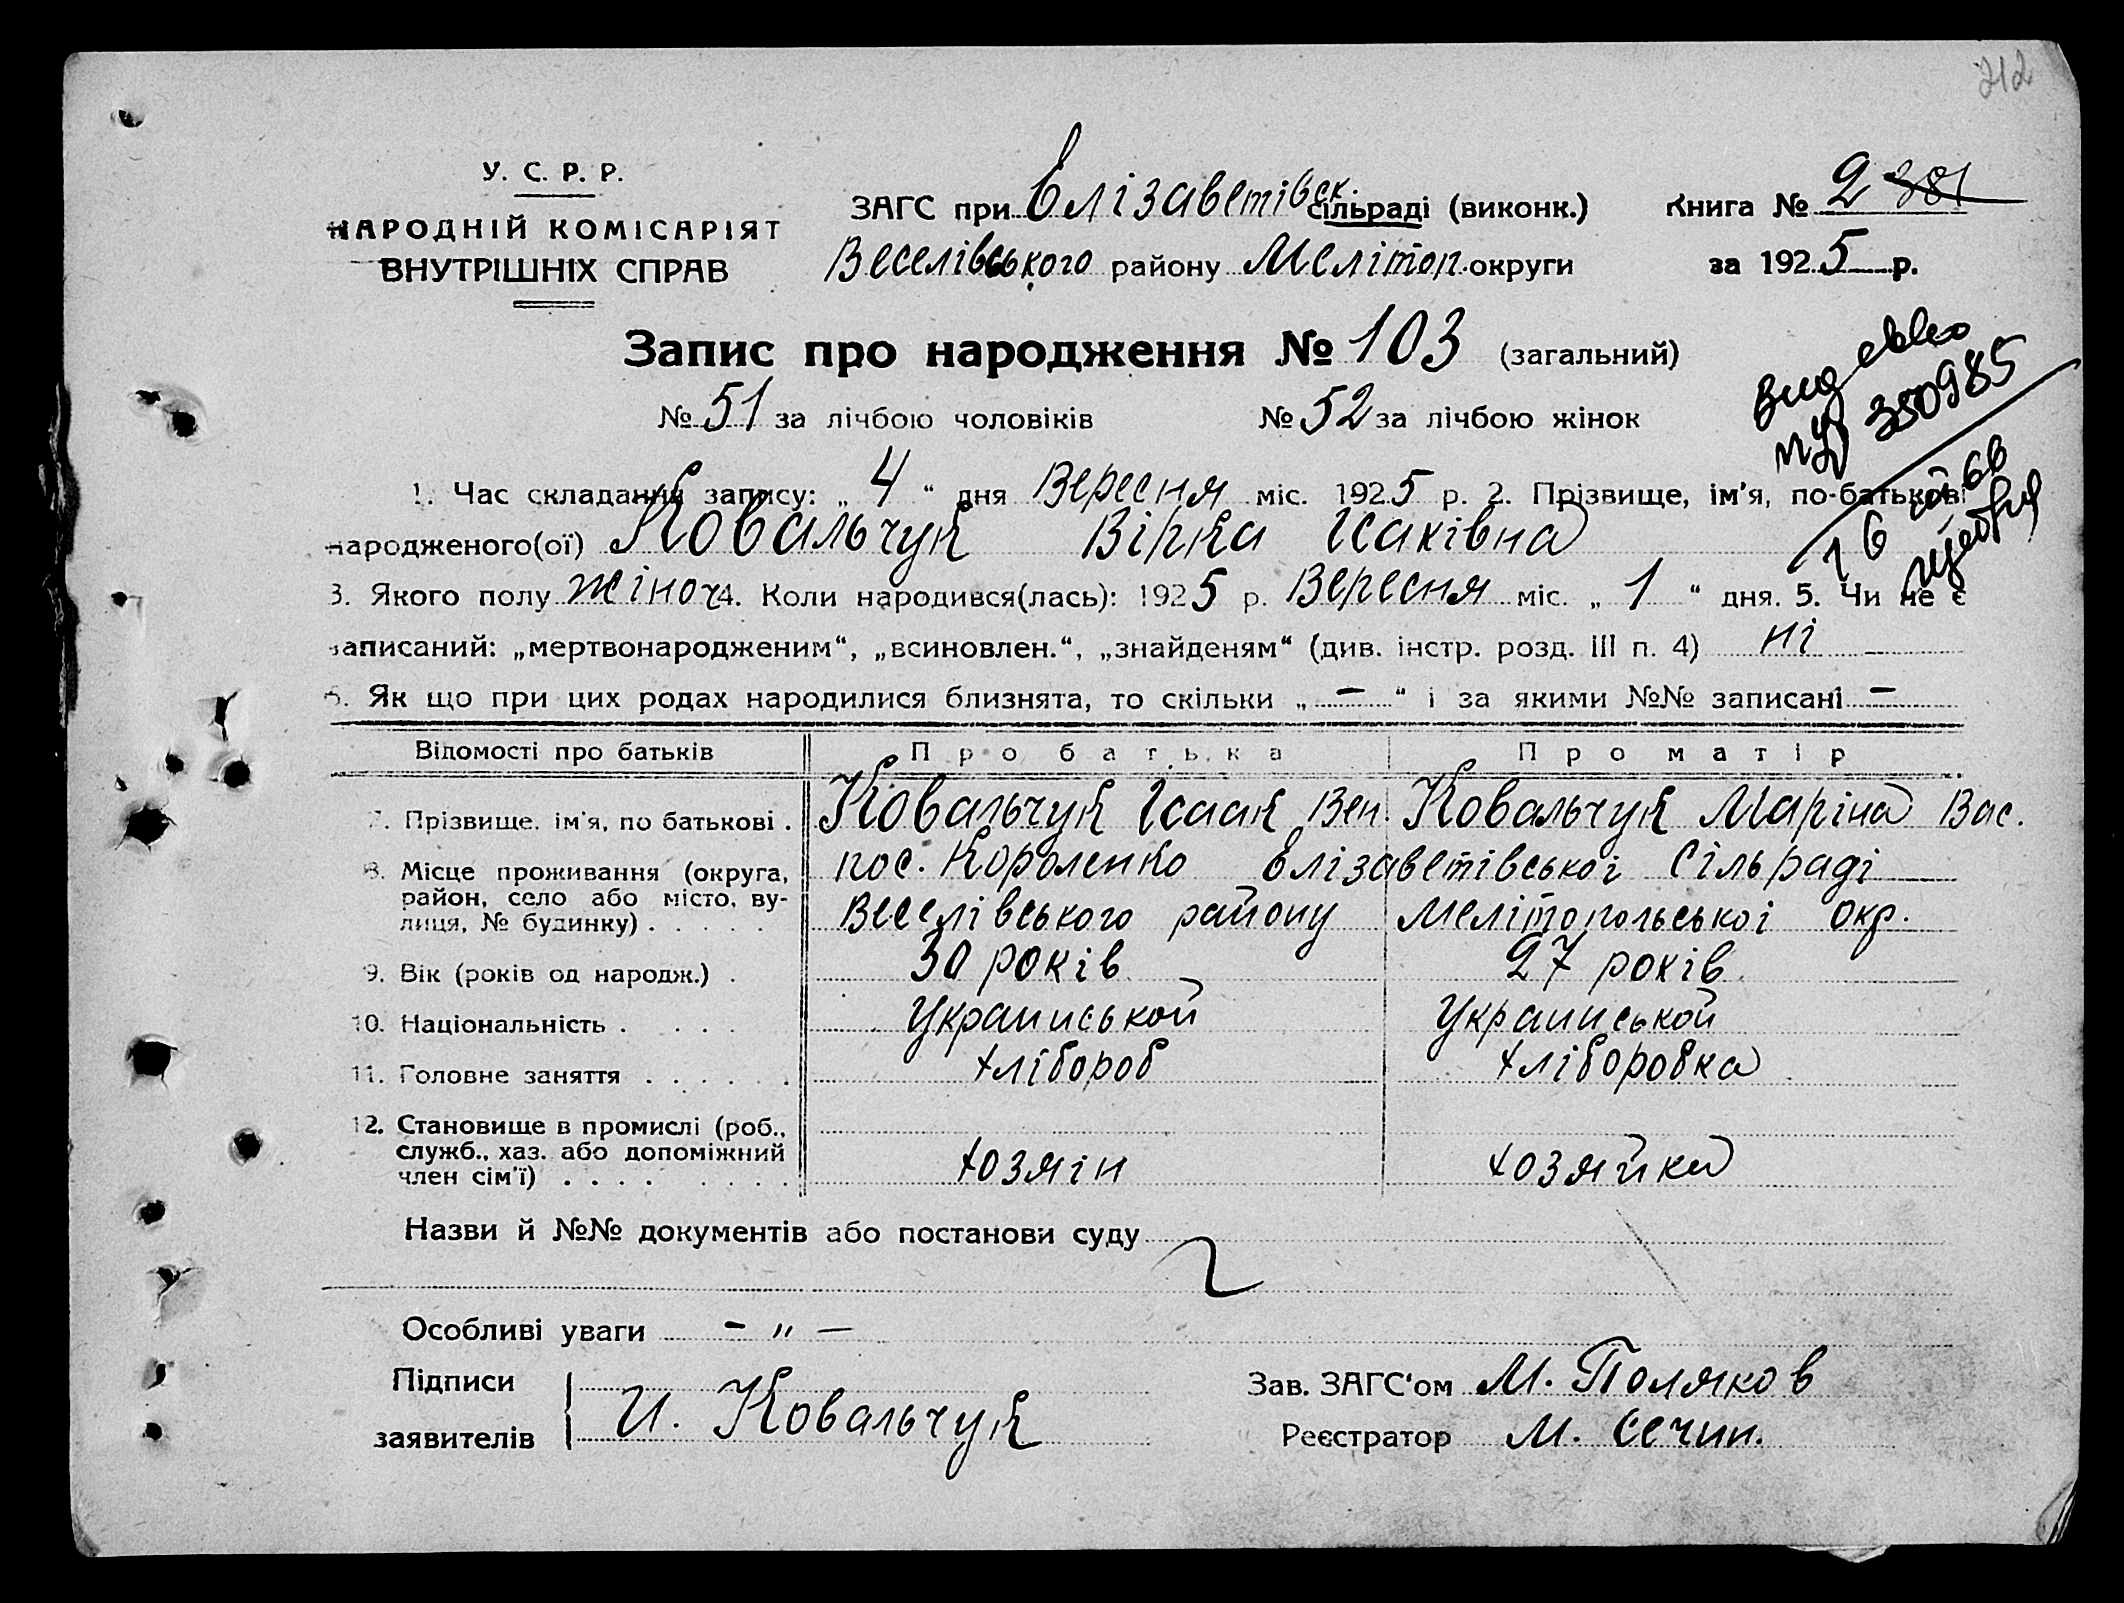 212
У. С. Р. Р.
НАРОДНІЙ КОМІСАРІЯТ
ВНУТРІШНІХ СПРАВ
ЗАГС при Елізаветівск. сільраді (виконк.)
Веселівського району Мелітоп. округи
Книга № 2 381
за 1925 р.
Запис про народження № 103 (загальний)
№ 51 за лічбою чоловіків № 52 за лічбою жінок
350985
1. Час складання запису: „ 4 “ дня Вересня міс. 1925 р. 2. Прізвище, ім'я, по-батькові
народженого(ої) Ковальчук Вірка Исаківна
3. Якого полу жіноч 4. Коли народився(лась): 1925 р. Вересня міс. „ 1 “ дня. 5. Чи не є
записаний: „мертвонародженим“, „всиновлен.“, „знайденям“ (див. інстр. розд. III п. 4) ні
6. Як що при цих родах народилися близнята, то скільки „ — “ і за якими №№ записані —
Відомості про батьків Про батька Про матір
7. Прізвище, ім'я, по батькові . Ковальчук Исаак Вен. Ковальчук Маріна Вас.
8. Місце проживання (округа, район, село або місто, вулиця, № будинку) . . . . . пос. Короленко Єлізаветівськоі Сільраді
Веселівського району Мелітопольськоі окр.
9. Вік (років од народж.) . 30 років 27 років
10. Національність . . . . Украиньской Украиньской
11. Головне заняття . . . . . . хлібороб хліборобка
12. Становище в промислі (роб., служб., хаз. або допоміжний член сім'ї) . . . . . . . . хозяін хозяйка
Назви й №№ документів або постанови суду
Особливі уваги — „ —
Підписи
заявителів И. Ковальчук
Зав. ЗАГС'ом М. Поляков
Реєстратор М. Сечин.